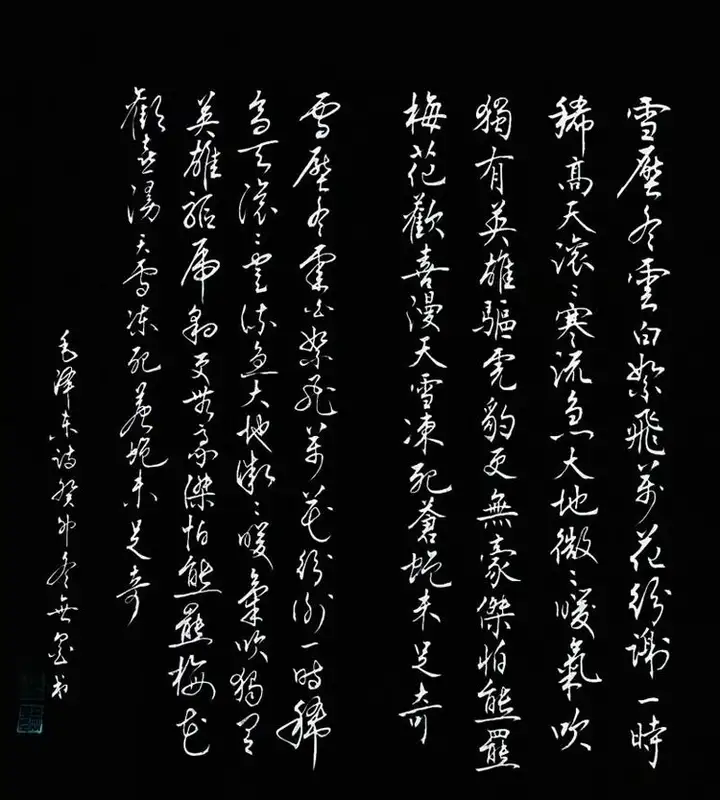 雪壓冬雲白絮飛萬花紛謝一時
稀高天滾〻寒流急大地微〻暖氣吹
獨有英雄驅虎豹更無豪傑怕熊羆
梅花歡喜漫天雪凍死蒼蠅未足奇
雪壓冬雲白絮飛萬花紛謝一時稀
高天滾〻寒流急大地微〻暖氣吹獨有
英雄驅虎豹更無豪傑怕熊羆梅花
歡喜漫天雪凍死蒼蠅未足奇
毛澤東詩癸卯冬無